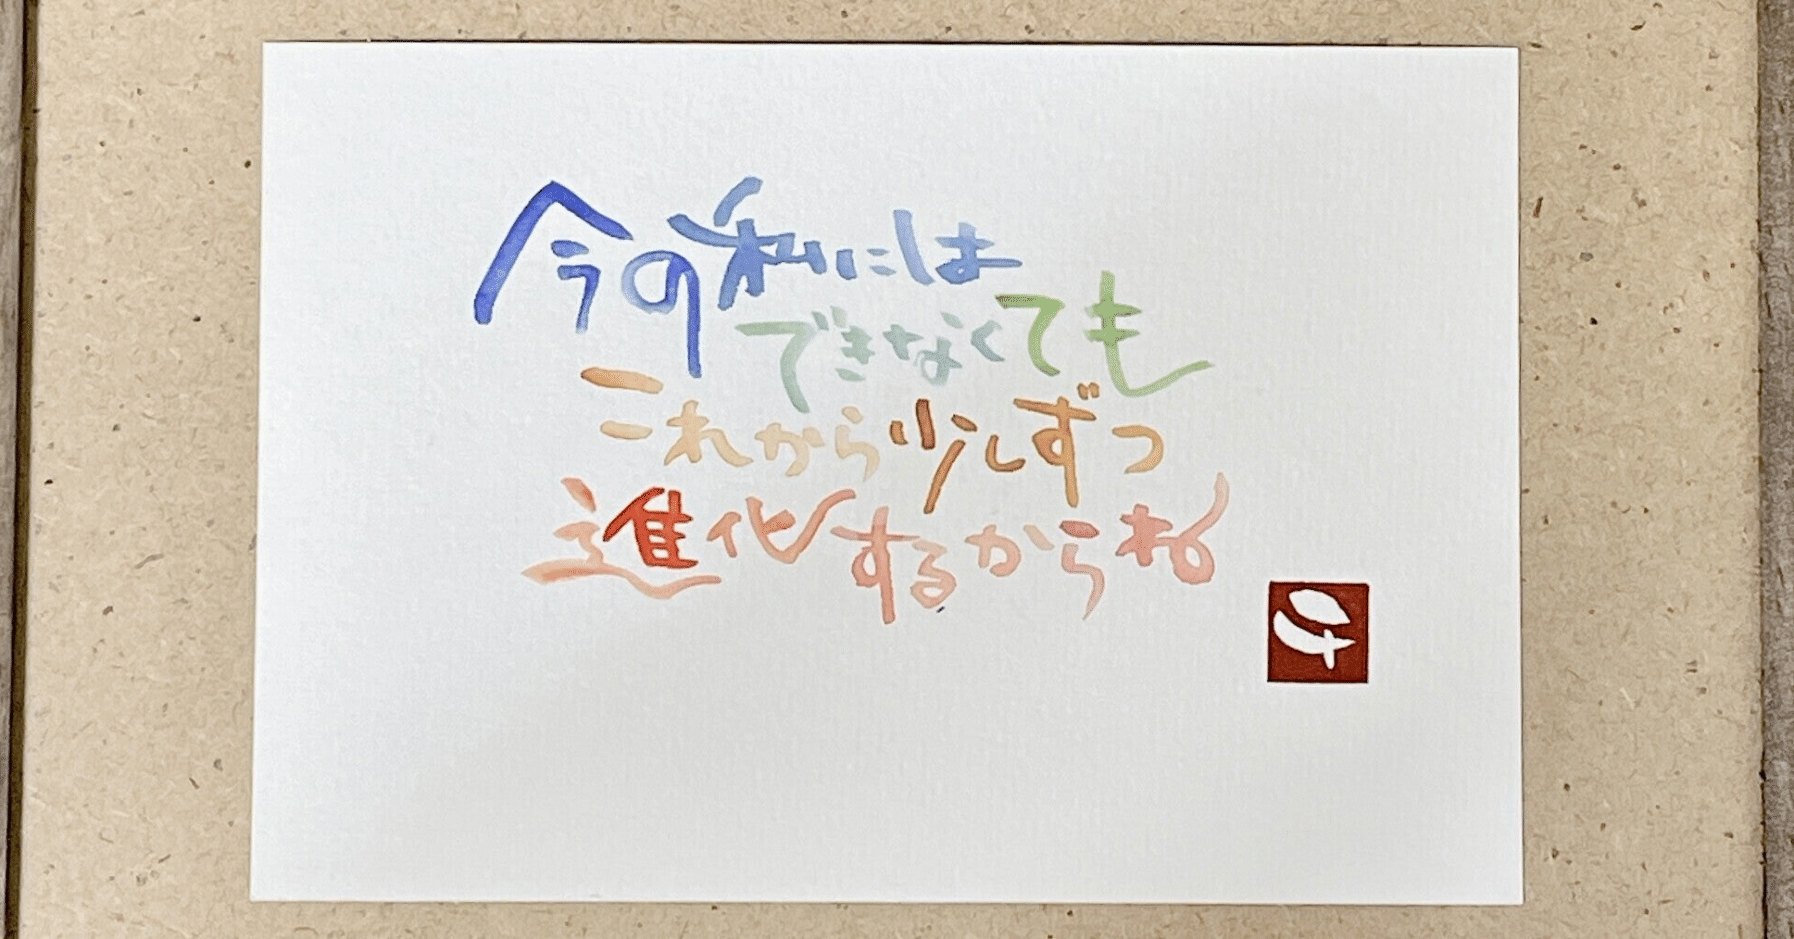 今の私には
できなくても
これから少しずつ
進化するからね